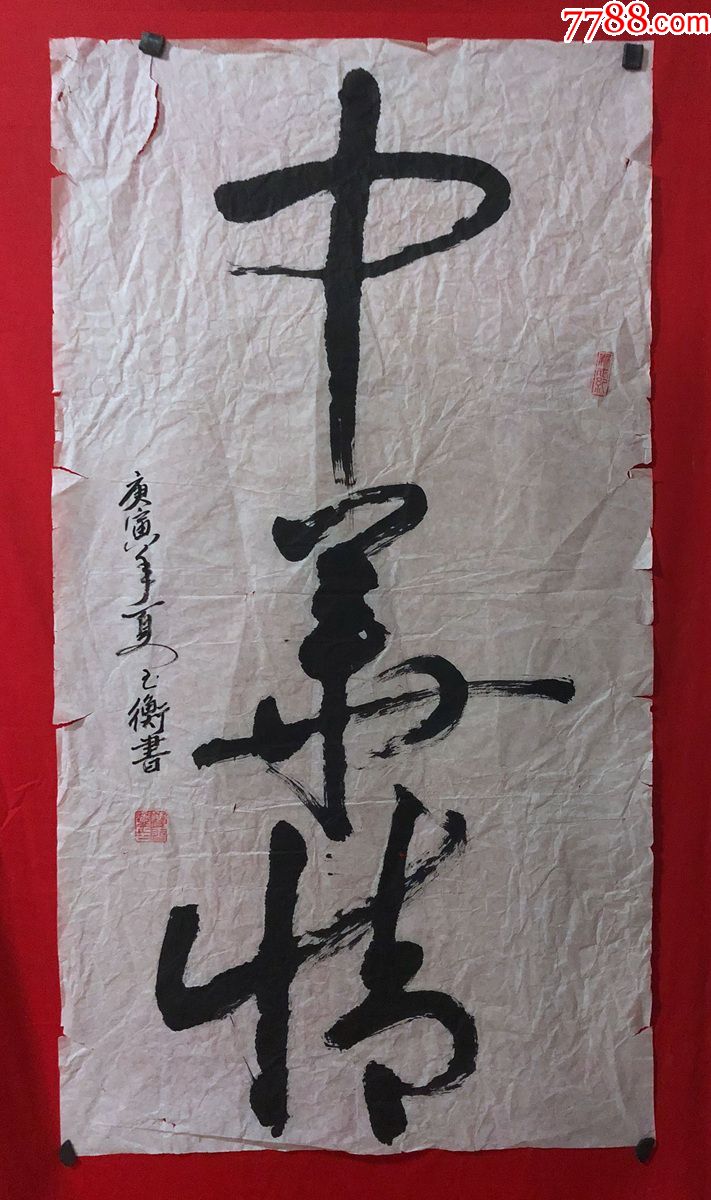 7788.com
中華情
庚寅年夏
玉衡書